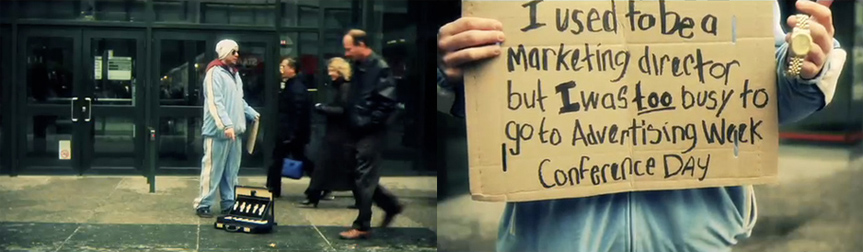 I used to be a
Marketing director
but I was too busy to
go to Advertising Week
Conference DAY